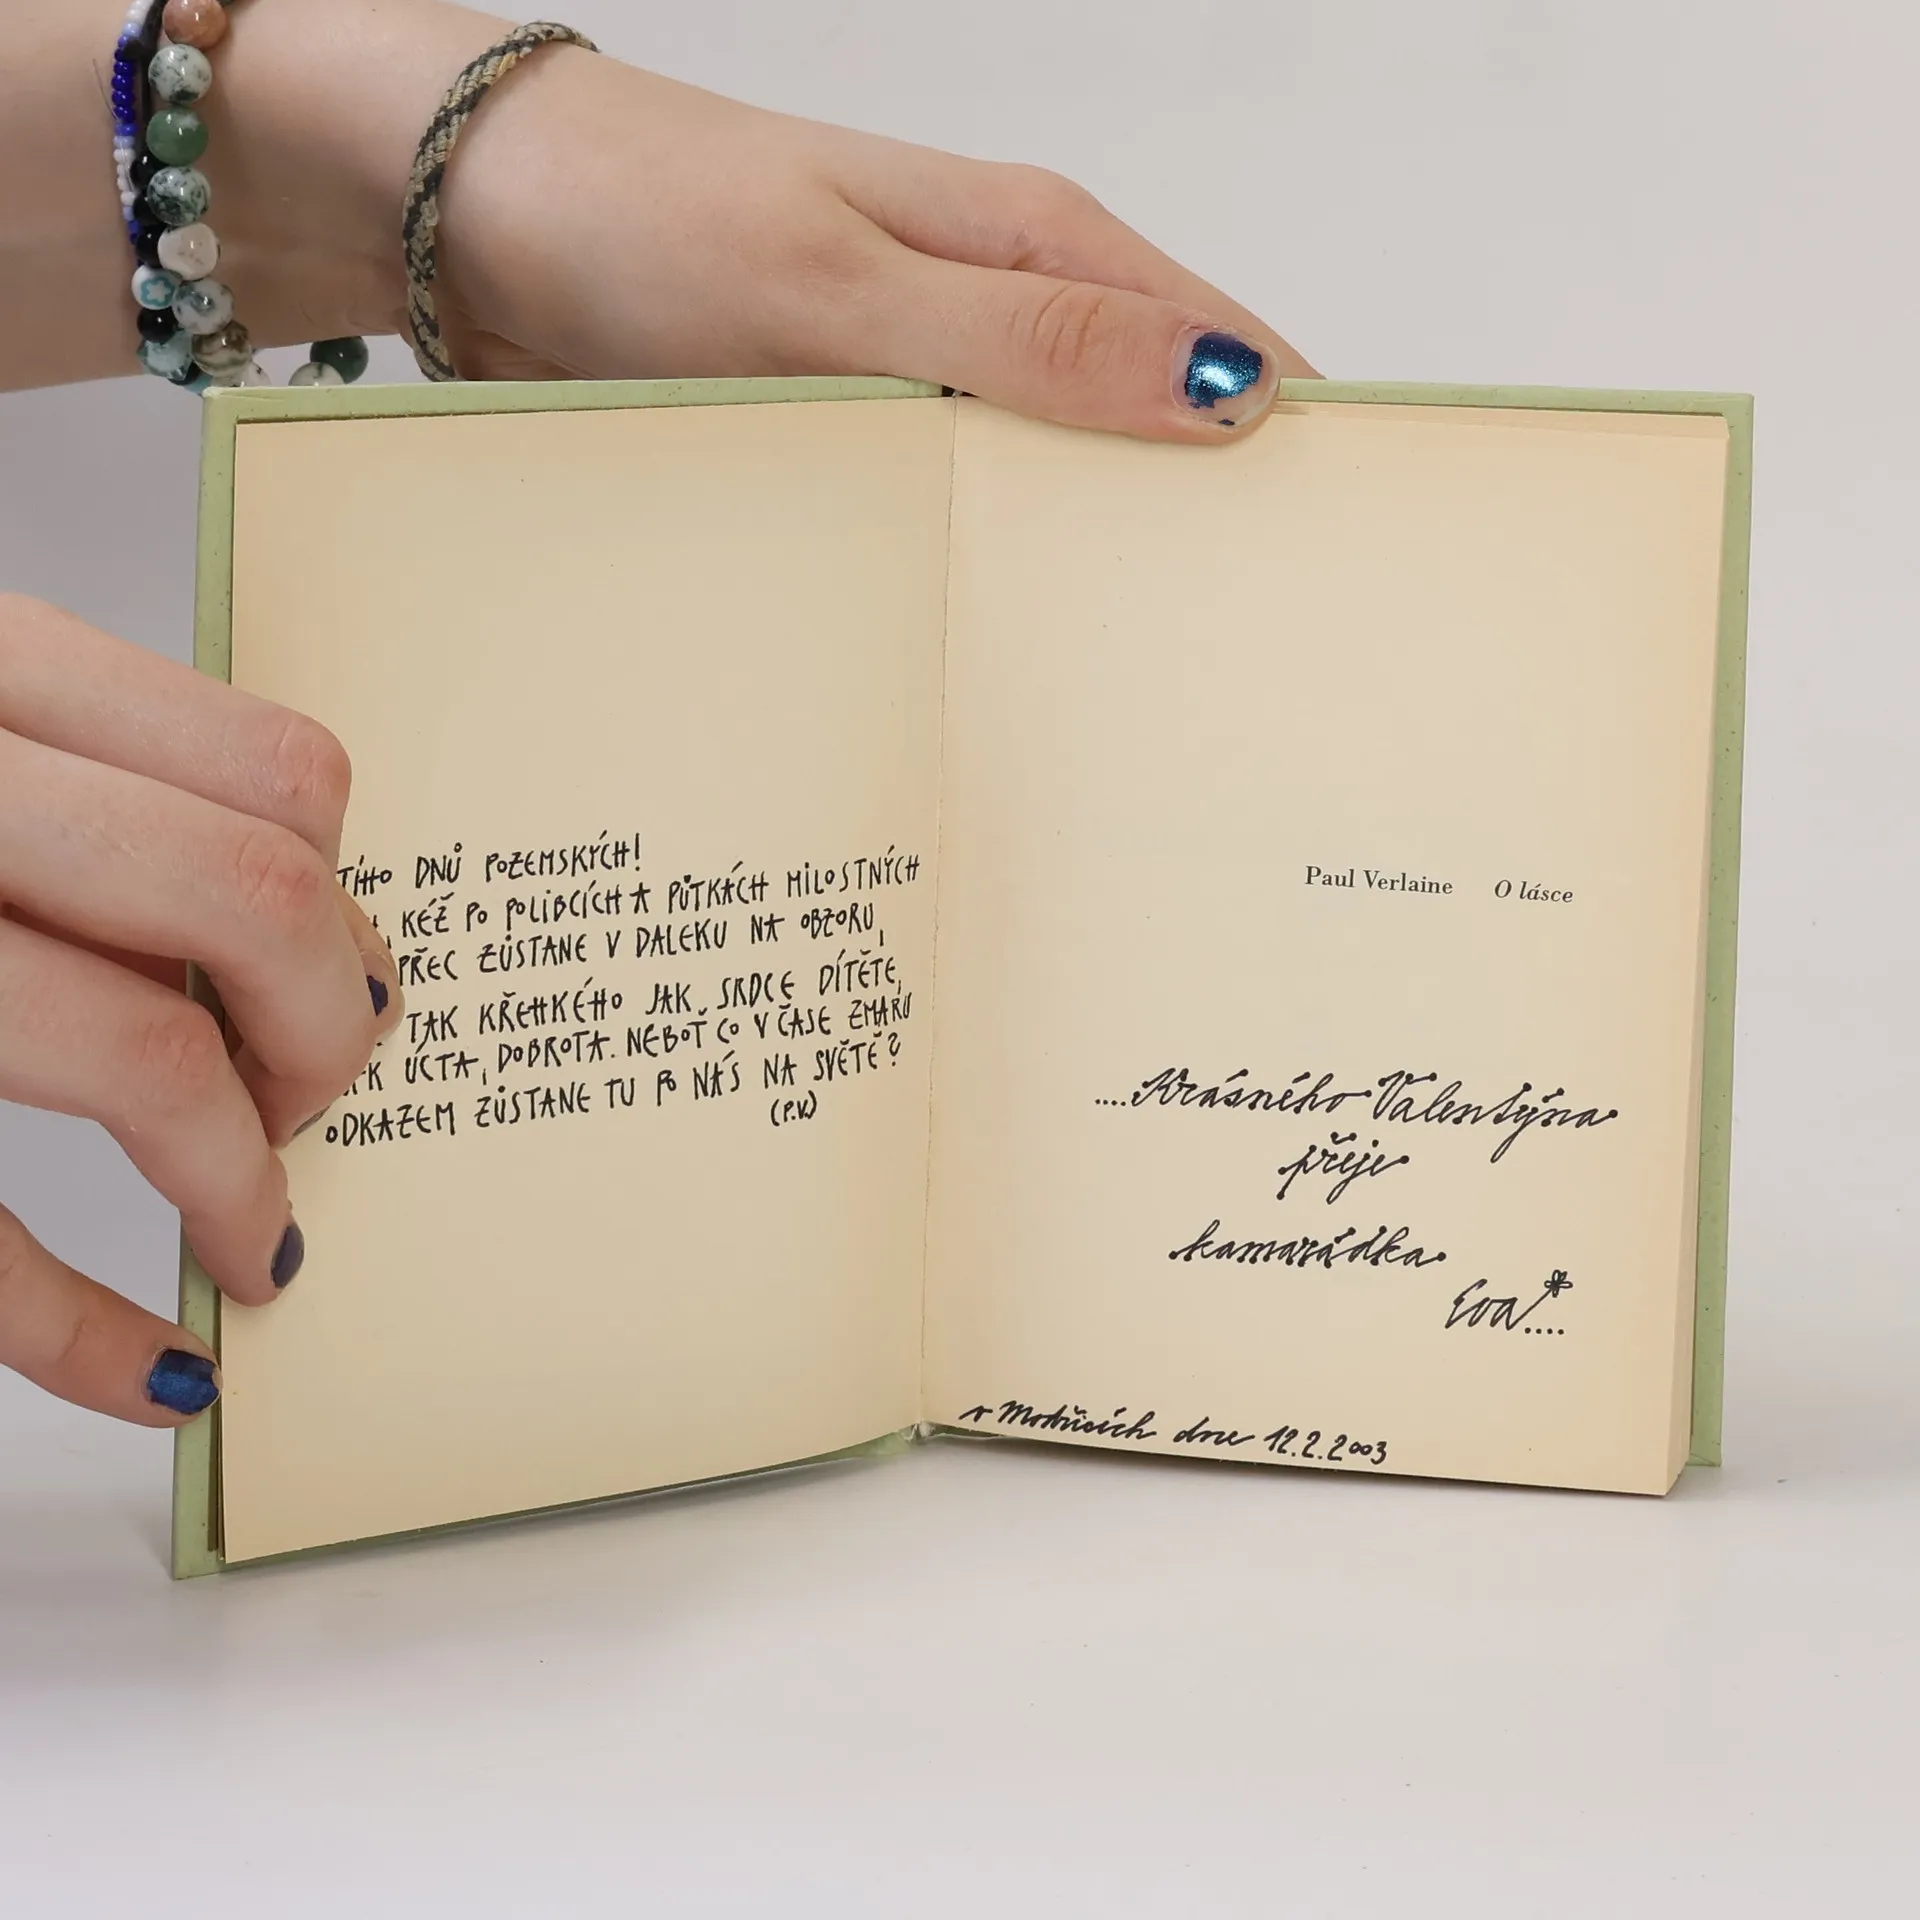 TÍHO DNŮ POZEMSKÝCH!
, KÉŽ PO POLIBCÍCH A PŮTKÁCH MILOSTNÝCH
PŘEC ZŮSTANE V DALEKU NA OBZORU,
TAK KŘEHKÉHO JAK SRDCE DÍTĚTE,
K ÚCTA, DOBROTA. NEBOŤ CO V ČASE ZMARU
ODKAZEM ZŮSTANE TU PO NÁS NA SVĚTĚ?
(P.V.)
Paul Verlaine O lásce
....Krásného Valentýna
přeje
kamarádka
Eva....
v Modřicích dne 12.2.2003